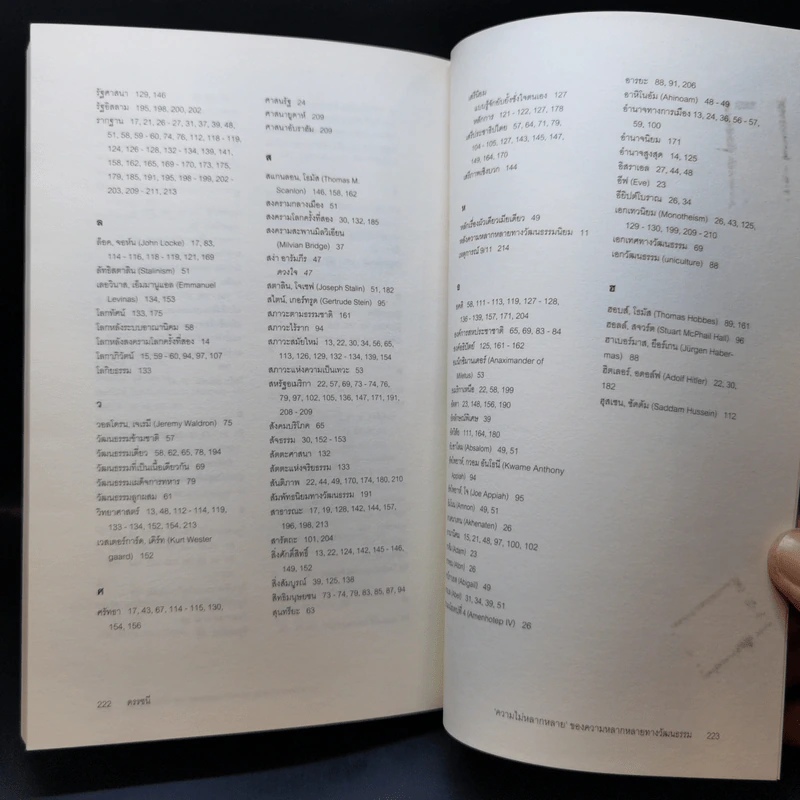 รัฐศาสนา 129, 146
รัฐอิสลาม 195, 198, 200, 202
รากฐาน 17, 21, 26 - 27, 31, 37, 39, 48,
51, 58, 59 - 60, 74, 76, 112, 118 - 119,
124, 126 - 128, 132 - 134, 139, 141,
158, 162, 165, 169 - 170, 173, 175,
179, 185, 191, 195, 198 - 199, 202 -
203, 209 - 211, 213
ล
ล็อค, จอห์น (John Locke) 17, 83,
114 - 116, 118 - 119, 121, 169
ลัทธิสตาลิน (Stalinism) 51
เลอวินาส, เอ็มมานูแอล (Emmanuel
Levinas) 134, 153
โลกทัศน์ 133, 175
โลกหลังระบบอาณานิคม 58
โลกหลังสงครามโลกครั้งที่สอง 14
โลกาภิวัตน์ 15, 59 - 60, 94, 97, 107
โลกิยธรรม 133
ว
วอลโดรน, เจเรมี (Jeremy Waldron) 75
วัฒนธรรมข้ามชาติ 57
วัฒนธรรมเดียว 58, 62, 65, 78, 194
วัฒนธรรมที่เป็นเนื้อเดียวกัน 69
วัฒนธรรมเผด็จการทหาร 79
วัฒนธรรมลูกผสม 61
วิทยาศาสตร์ 13, 48, 112 - 114, 119,
133 - 134, 152, 154, 213
เวสเตอร์การ์ด, เคิร์ท (Kurt Wester
gaard) 152
ศ
ศรัทธา 17, 43, 67, 114 - 115, 130,
154, 156
ศาสนรัฐ 24
ศาสนายูดาห์ 209
ศาสนาอับราฮัม 209
ส
สแกนลอน, โธมัส (Thomas M.
Scanlon) 146, 158, 162
สงครามกลางเมือง 51
สงครามโลกครั้งที่สอง 30, 132, 185
สงครามสะพานมิลวิเยียน
(Milvian Bridge) 37
สง่า อารัมภีร 47
ดวงใจ 47
สตาลิน, โจเซฟ (Joseph Stalin) 51, 182
สไตน์, เกอร์ทรูด (Gertrude Stein) 95
สภาวะตามธรรมชาติ 161
สภาวะไร้ราก 94
สภาวะสมัยใหม่ 13, 22, 30, 34, 56, 65,
113, 126, 129, 132 - 134, 139, 154
สภาวะแห่งความเป็นเทวะ 53
สหรัฐอเมริกา 22, 57, 69, 73 - 74, 76,
79, 97, 102, 105, 136, 147, 171, 191,
208 - 209
สังคมบริโภค 65
สัจธรรม 30, 152 - 153
สัตตะศาสนา 132
สัตตะแห่งจริยธรรม 133
สันติภาพ 22, 44, 49, 170, 174, 180, 210
สัมพัทธนิยมทางวัฒนธรรม 191
สาธารณะ 17, 19, 128, 142, 144, 157,
196, 198, 213
สารัตถะ 101, 204
สิ่งศักดิ์สิทธิ์ 13, 22, 124, 142, 145 - 146,
149, 152
สิ่งสัมบูรณ์ 39, 125, 138
สิทธิมนุษยชน 73 - 74, 79, 83, 85, 87, 94
สุนทรียะ 63
222 ดรรชนี
เสรีนิยม
แบบรู้จักยับยั้งชั่งใจตนเอง 127
หลักการ 121 - 122, 127, 178
เสรีประชาธิปไตย 57, 64, 71, 79,
104 - 105, 127, 143, 145, 147,
149, 164, 170
เสรีภาพเชิงบวก 144
ห
หลักเรื่องผัวเดียวเมียเดียว 49
หลังความหลากหลายทางวัฒนธรรมนิยม 11
เหตุการณ์ 9/11 214
อ
อคติ 58, 111 - 113, 119, 127 - 128,
136 - 139, 157, 171, 204
องค์การสหประชาชาติ 65, 69, 83 - 84
องค์อธิปัตย์ 125, 161 - 162
(Anaximander of
Miletus) 53
22, 58, 199
23, 148, 156, 190
39
111, 164, 180
(Absalom) 49, 51
(Kwame Anthony
Appiah) 94
(Joe Appiah) 95
(Amnon) 49, 51
(Akhenaten) 26
15, 21, 48, 97, 100, 102
(Adam) 23
(Aton) 26
(Abigail) 49
(Abel) 31, 34, 39, 51
(Amenhotep IV) 26
อารยะ 88, 91, 206
อาหิโนอัม (Ahinoam) 48 - 49
อำนาจทางการเมือง 13, 24, 36, 56 - 57,
59, 100
อำนาจนิยม 171
อำนาจสูงสุด 14, 125
อิสราเอล 27, 44, 48
อีฟ (Eve) 23
อียิปต์โบราณ 26, 34
เอกเทวนิยม (Monotheism) 26, 43, 125,
129 - 130, 199, 209 - 210
เอกเทศทางวัฒนธรรม 69
เอกวัฒนธรรม (uniculture) 88
ฮ
ฮอบส์, โธมัส (Thomas Hobbes) 89, 161
ฮอลล์, สจวร์ต (Stuart McPhail Hall) 96
ฮาเบอร์มาส, เยือร์เกน (Jürgen Haber-
mas) 88
ฮิตเลอร์, อดอล์ฟ (Adolf Hitler) 22, 30,
182
ฮุสเซน, ซัดดัม (Saddam Hussein) 112
'ความไม่หลากหลาย' ของความหลากหลายทางวัฒนธรรม 223